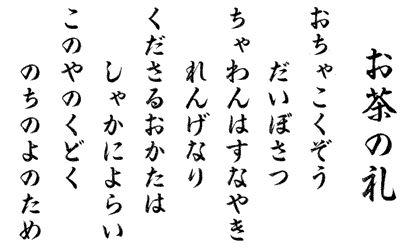 お茶の礼
おちゃこくぞう
だいぼさつ
ちゃわんはすなやき
れんげなり
くださるおかたは
しゃかによらい
このやのくどく
のちのよのため